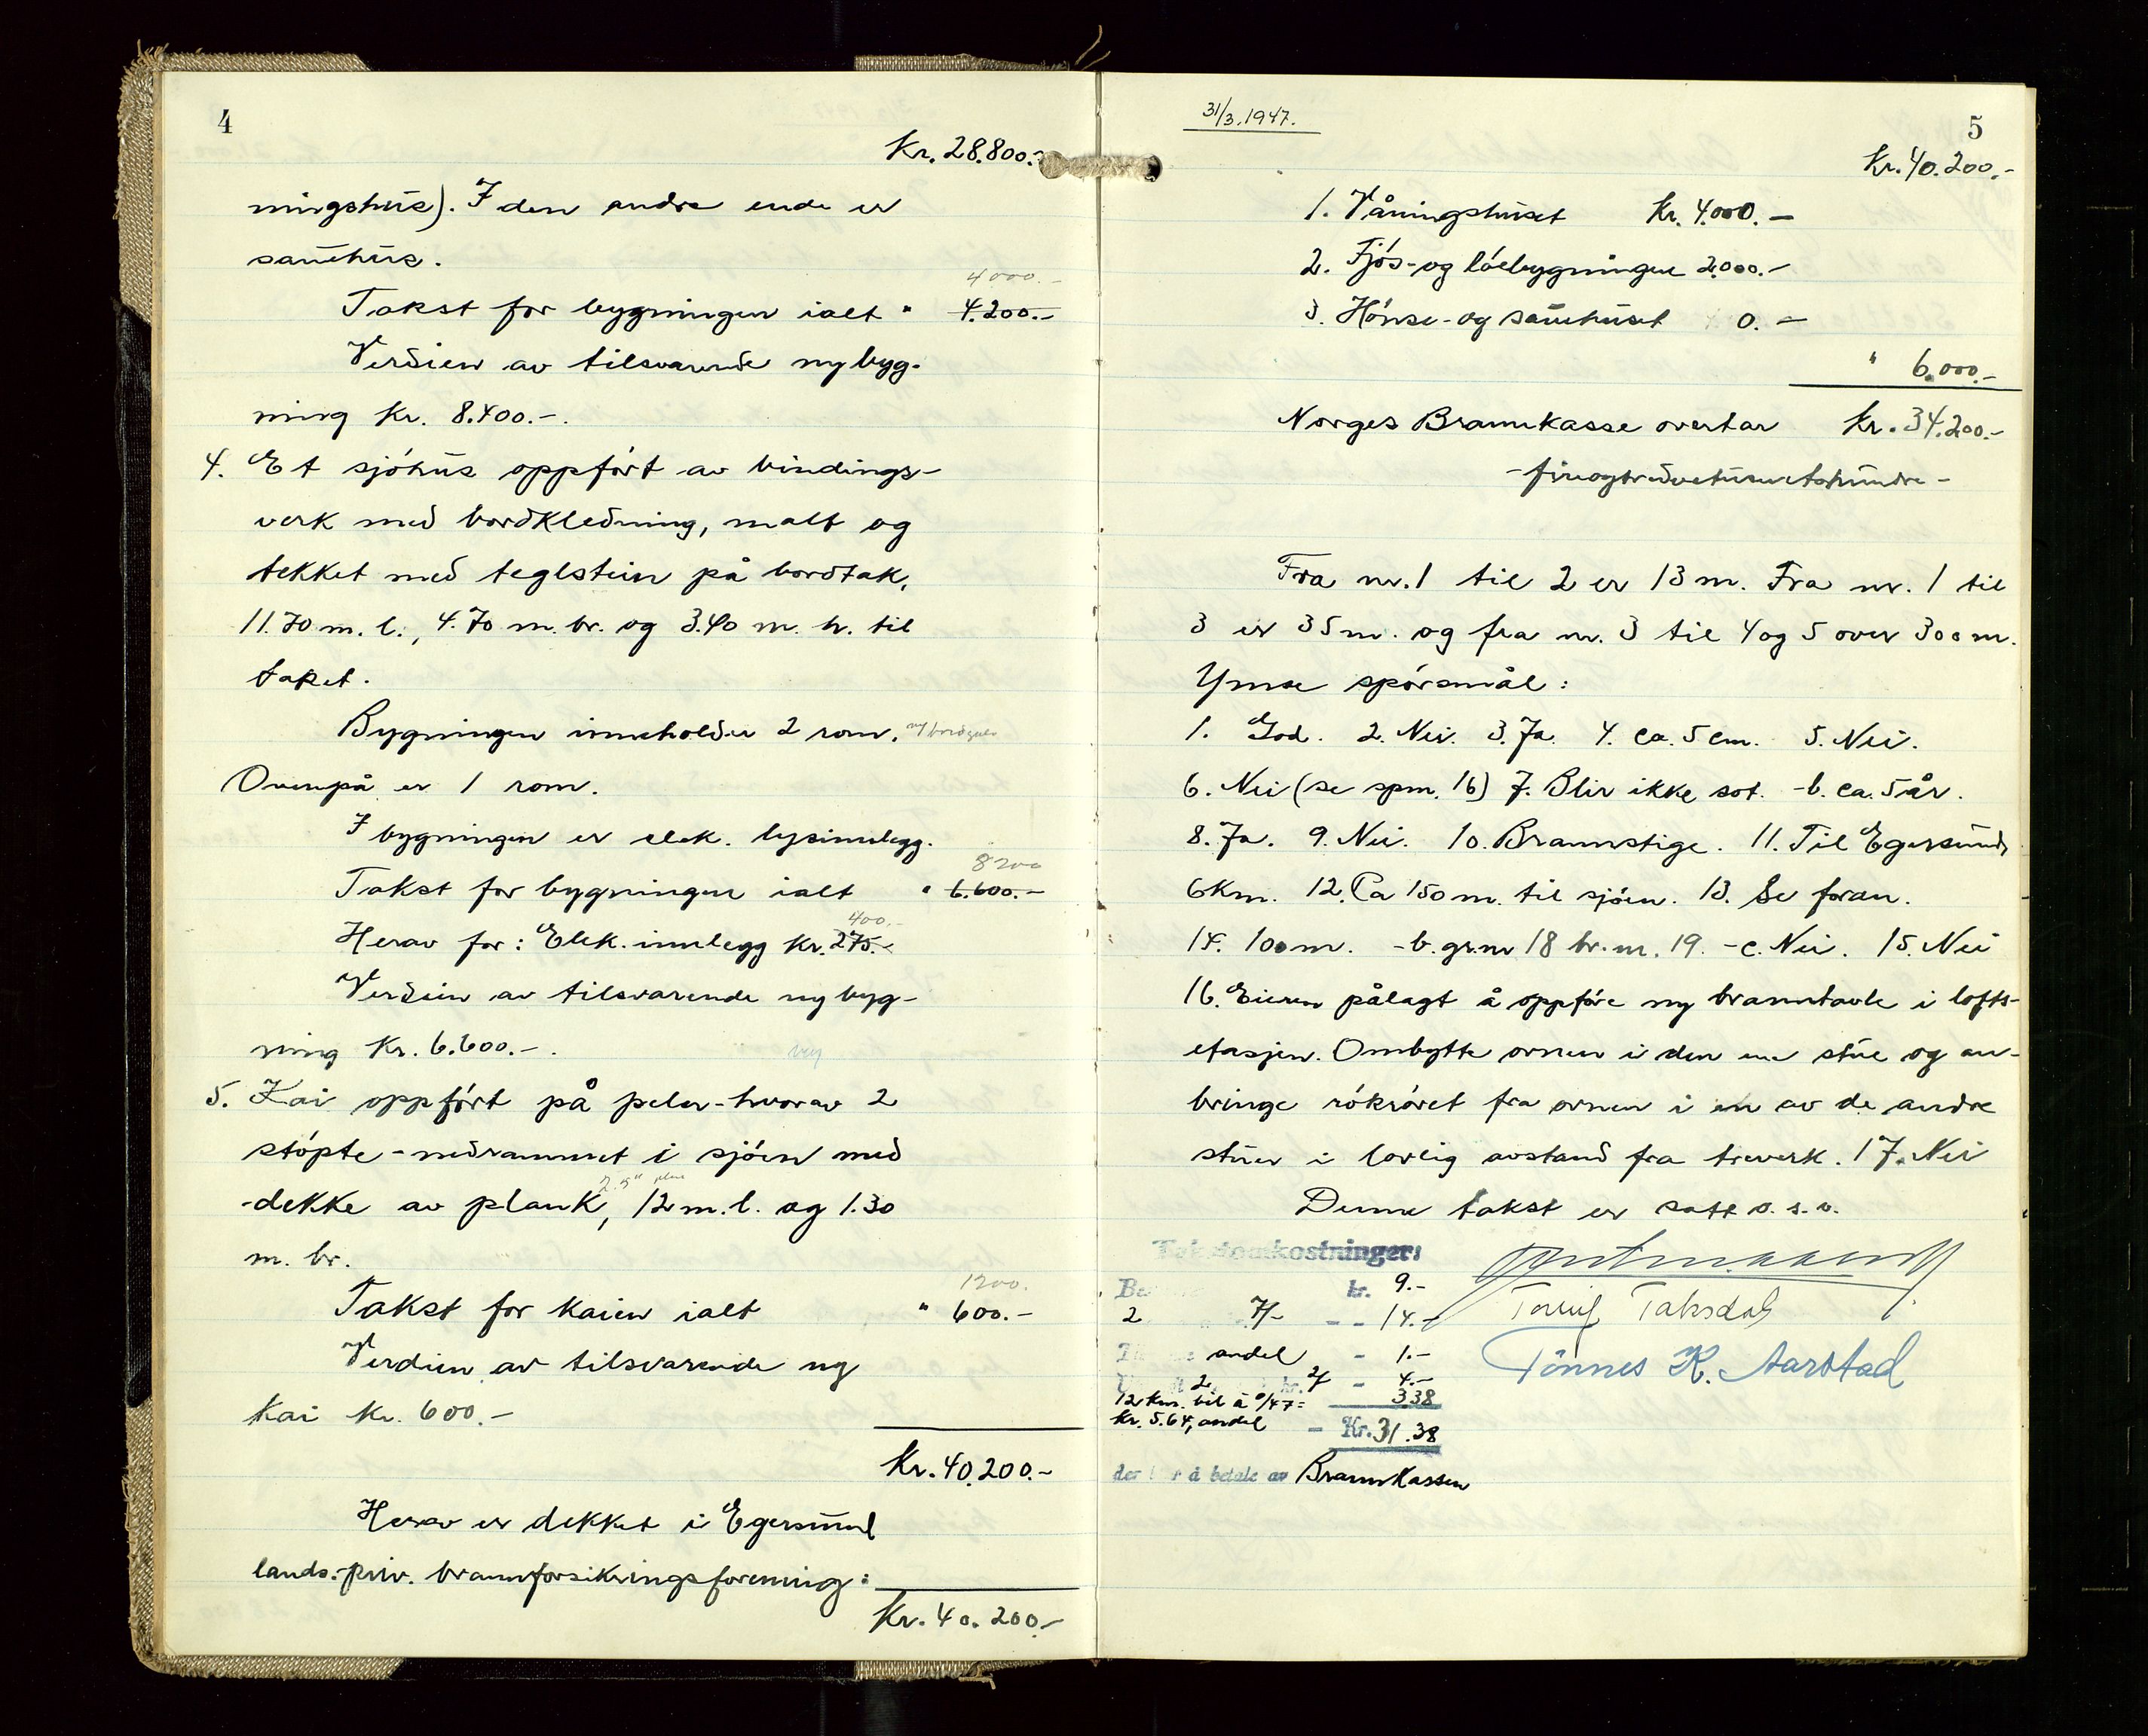 4
Kr. 28.800.-
ningshus). I den andre ende er
sauehus.
4000.-
Takst for bygningen ialt " 4.200.-
Verdien av tilsvarende ny byg-
ning Kr. 8.400.-.
4. Et sjöhus oppfört av bindings-
verk med bordkledning, malt og
tekket med teglstein på bordtak,
11.70 m. l., 4.70 m. br. og 3.40 m. h. til
taket.
Bygningen inneholder 2 rom.
Ovenpå er 1 rom.
I bygningen er elek. lysinnlegg.
8200
Takst for bygningen ialt " 6.600.-
400.-
Herav for: Elek. innlegg Kr. 275.-
Verdien av tilsvarende ny byg-
ning Kr. 6.600.-.
5. Kai oppfört på peler - hvorav 2
stöpte - nedrammet i sjöen med
2.5"
dekke av plank, 12 m. l. og 1.30
m. br.
1200.
Takst for kaien ialt " 600.-
Verdien av tilsvarende ny
kai Kr. 600.-
Kr. 40.200.-
Herav er dekket i Egersund
lands. priv. brannforsikringsforening:
Kr. 40.200.-
31/3.1947.
5
Kr. 40.200.-
1. Våningshuset Kr. 4.000.-
2. Fjös- og löebygningen 2.000.-
3. Hönse- og sauehuset 0.-
" 6.000.-
Norges Brannkasse overtar Kr. 34.200.-
-fireogtredvetusentohundre-
Fra nr. 1 til 2 er 13 m. Fra nr. 1 til
3 er 35 m. og fra nr. 3 til 4 og 5 over 300 m.
Ymse spörsmål:
1. God. 2. Nei. 3. Ja. 4. Ca. 5 cm. 5. Nei.
6. Nei (se spm. 16) 7. Blir ikke sot. -b. Ca. 5 år.
8. Ja. 9. Nei. 10. Brannstige. 11. Til Egersund
6 Km. 12. Ca 150 m. til sjöen. 13. Se foran.
14. 100 m. -b. gr.nr 18 br.nr. 19. -c. Nei. 15. Nei
16. Eieren pålagt å oppföre ny branntavle i lofts-
etasjen. Ombytte ovnen i den ene stue og an-
bringe rökröret fra ovnen i en av de andre
stuer i lovlig avstand fra treverk. 17. Nei
Denne takst er satt o. s. v.
Takstomkostninger:
kr. 9.-
2 7/- - - 14.-
Torleif Taksdal
andel - 1.-
Tönnes K. Aarstad
2 kr. 2/ - 4.-
12 km. bil à 0/47 = 3.38
kr. 5.64, andel - Kr. 31.38
der å betale av Brannkassen